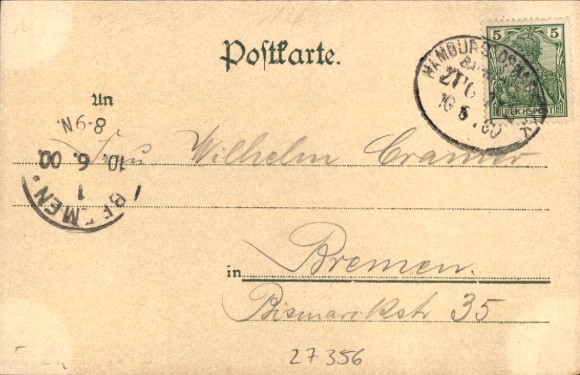 Postkarte.
5 5
REICHSPOST
HAMBURG
BAHNPOST
ZUG
10 6 00
An
8-9N.
10. 6. 00.
1
BREMEN.
Frau Wilhelm Cramer
in Bremen.
Bismarckstr 35
27356